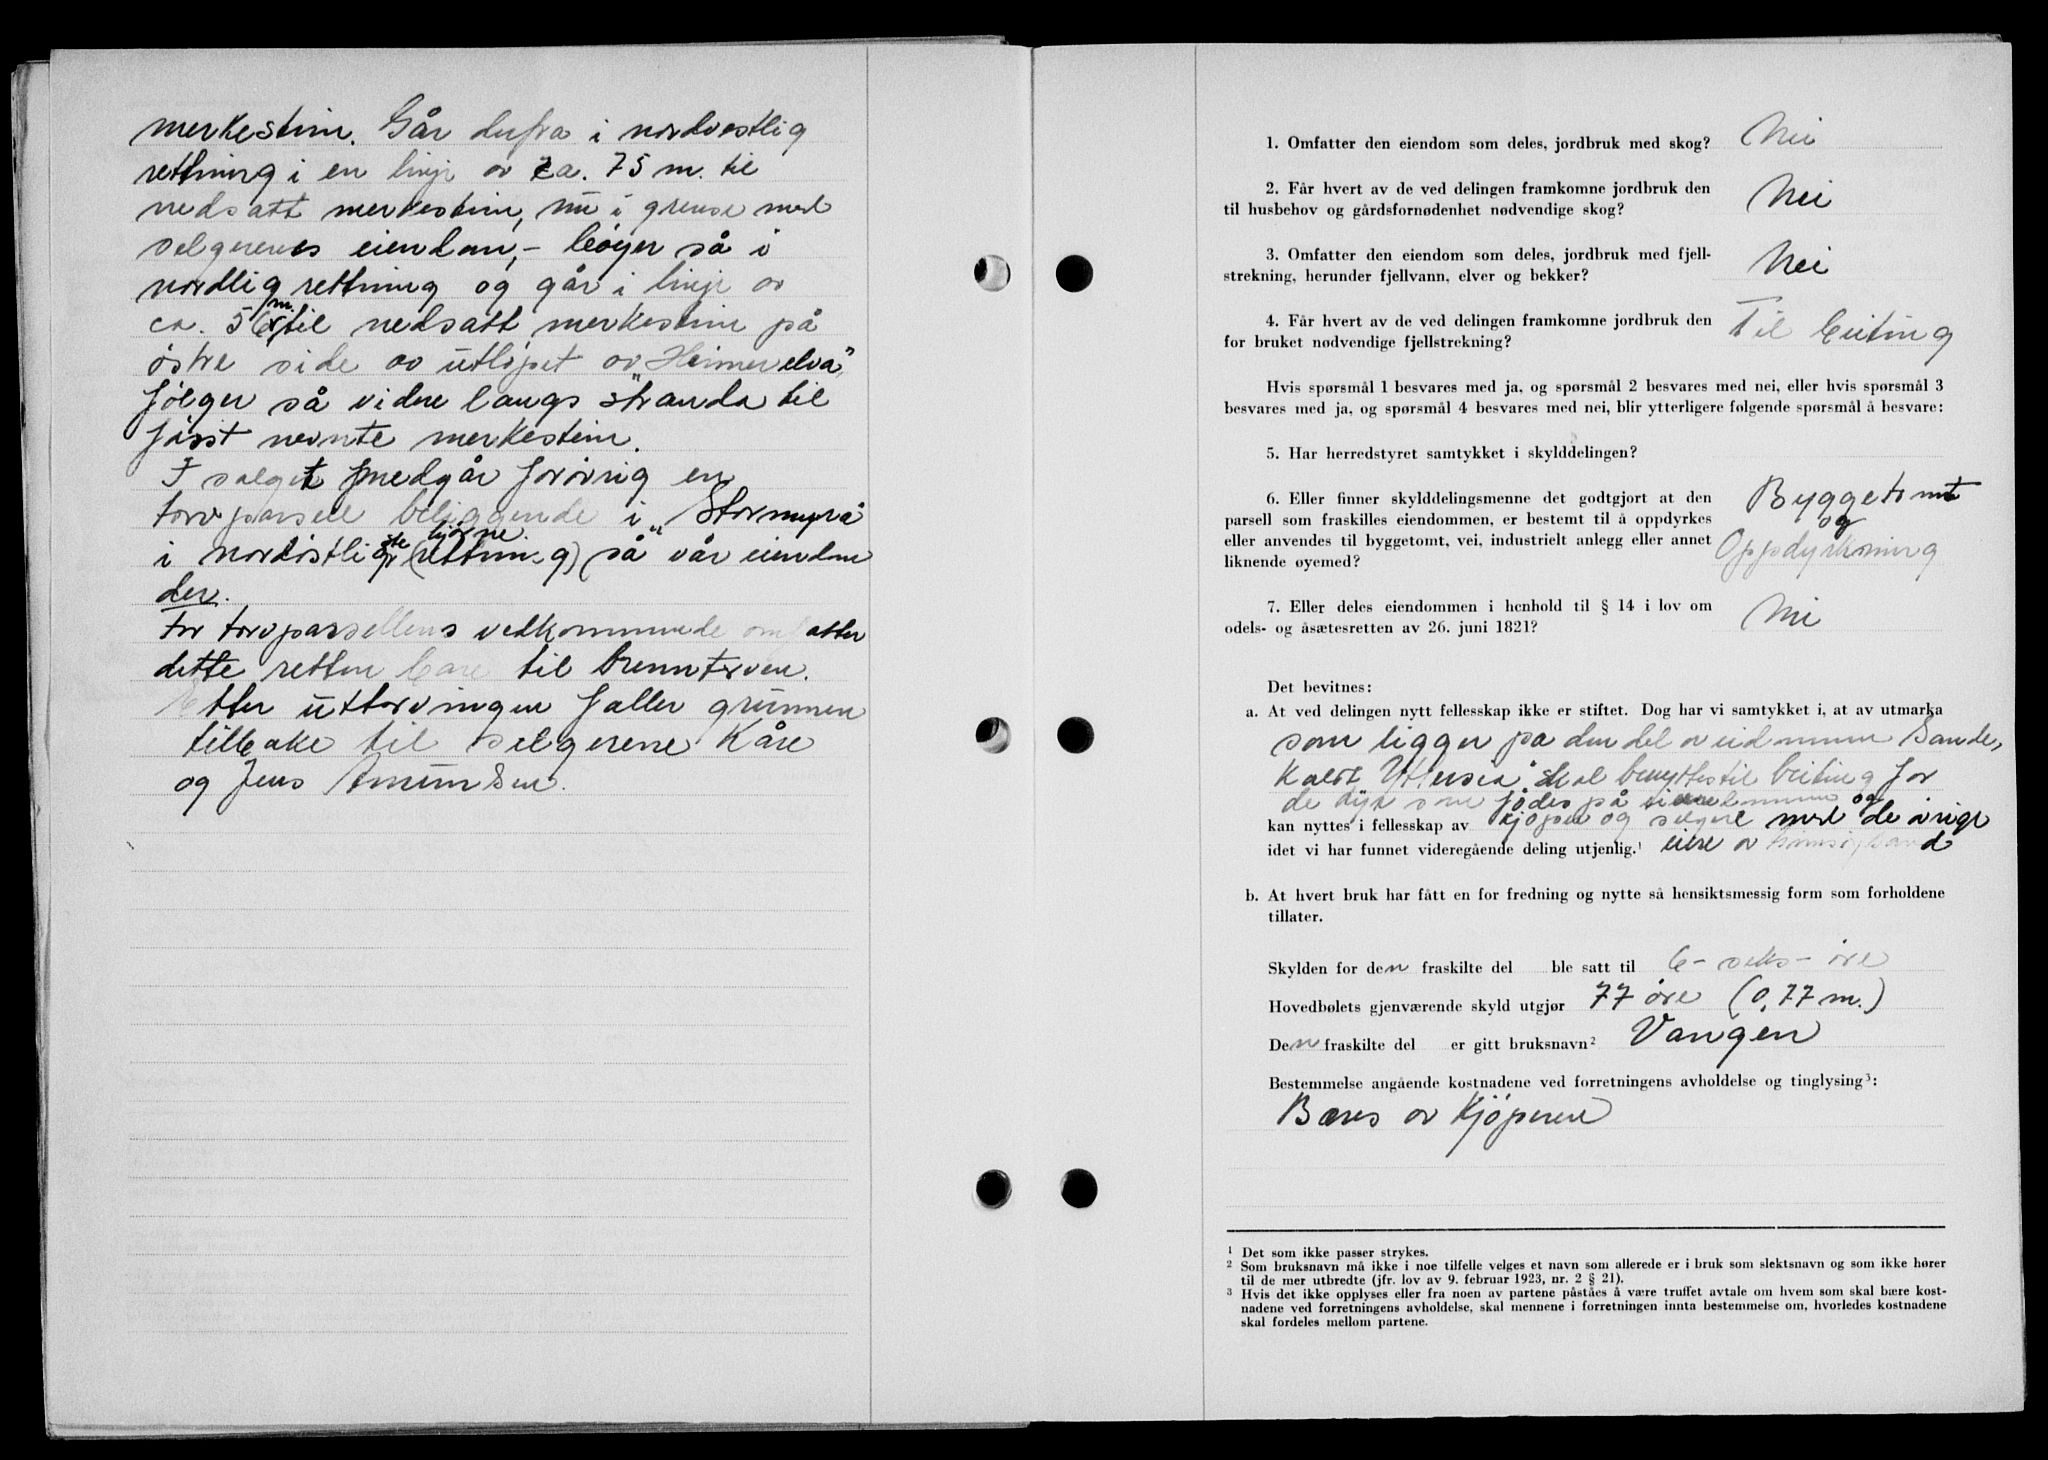 merkestein. Går derfra i nordvestlig
rettning i en linje av ca. 75 m. til
nedsatt merkestein, nu i grense med
selgerenes eiendom, - bøyer så i
nordlig rettning og går i linje av
ca. 56 m. til nedsatt merkestein på
østre side av utløpet av "Heimerelva",
følger så videre langs stranda til
først nevnte merkestein.
I salget medgår forøvrig en
torvparsell beliggende i "Stormyra"
i nordøstligste hjørne (rettning) så vår eiendom
der.
For torvparsellens vedkommende omfatter
dette retten bare til brenntorven.
Etter uttorvningen faller grunnen
tilbake til selgerene Kåre
og Jens Amundsen.
1. Omfatter den eiendom som deles, jordbruk med skog? Nei
2. Får hvert av de ved delingen framkomne jordbruk den
til husbehov og gårdsfornødenhet nødvendige skog? Nei
3. Omfatter den eiendom som deles, jordbruk med fjell-
strekning, herunder fjellvann, elver og bekker? Nei
4. Får hvert av de ved delingen framkomne jordbruk den
for bruket nødvendige fjellstrekning? Til beiting
Hvis spørsmål 1 besvares med ja, og spørsmål 2 besvares med nei, eller hvis spørsmål 3
besvares med ja, og spørsmål 4 besvares med nei, blir ytterligere følgende spørsmål å besvare:
5. Har herredstyret samtykket i skylddelingen?
6. Eller finner skylddelingsmenne det godtgjort at den
parsell som fraskilles eiendommen, er bestemt til å oppdyrkes
eller anvendes til byggetomt, vei, industrielt anlegg eller annet
liknende øyemed? Byggetomt
og
Oppdyrkning
7. Eller deles eiendommen i henhold til § 14 i lov om
odels- og åsætesretten av 26. juni 1821? Nei
Det bevitnes:
a. At ved delingen nytt fellesskap ikke er stiftet. Dog har vi samtykket i, at av utmarka
som ligger på den del av eiendommen Sande,
kalt Yttersia" skal benyttes til beiting for
de dyr som fødes på eiendommene og
kan nyttes i fellesskap av kjøper og selgere med de øvrige
idet vi har funnet videregående deling utjenlig.¹ eiere av
b. At hvert bruk har fått en for fredning og nytte så hensiktsmessig form som forholdene
tillater.
Skylden for den fraskilte del ble satt til 6 - seks - øre
Hovedbølets gjenværende skyld utgjør 77 øre (0,77 m.)
Den fraskilte del er gitt bruksnavn² Vangen
Bestemmelse angående kostnadene ved forretningens avholdelse og tinglysing³:
Bæres av Kjøperene
¹ Det som ikke passer strykes.
² Som bruksnavn må ikke i noe tilfelle velges et navn som allerede er i bruk som slektsnavn og som ikke hører
til de mer utbredte (jfr. lov av 9. februar 1923, nr. 2 § 21).
³ Hvis det ikke opplyses eller fra noen av partene påståes å være truffet avtale om hvem som skal bære kost-
nadene ved forretningens avholdelse, skal mennene i forretningen innta bestemmelse om, hvorledes kostnadene
skal fordeles mellom partene.